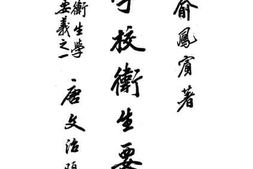 俞鳳賓著
學校衞生要
衞生學
要義之一
唐文治題